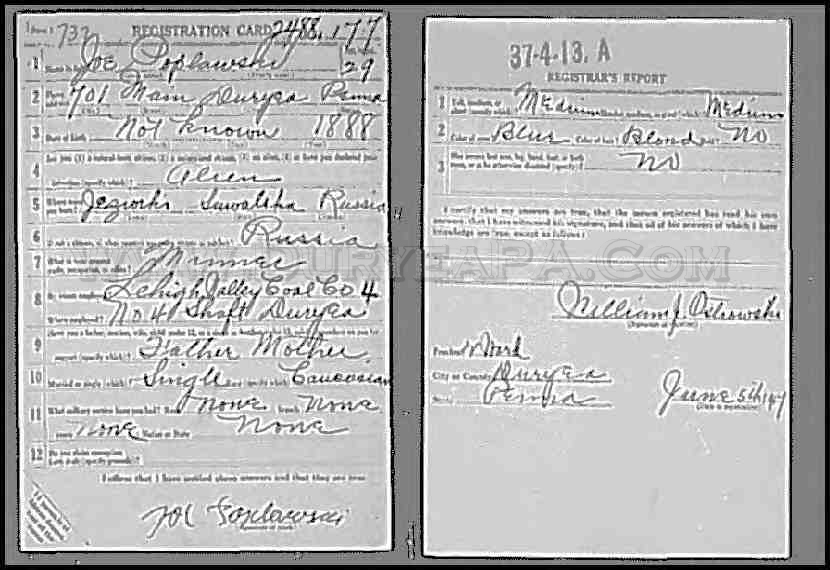 Form 1 737 REGISTRATION CARD 2488. 177
1 Joe Poplawski 29
2 701 Main Duryea Penna
3 Date of birth Not Known 1888
4 Are you (1) a natural-born citizen, (2) a naturalized citizen, (3) an alien, (4) or have you declared your
intention (specify which)? Alien
5 Where were you born? Suwalska Russia
6 If not a citizen, of what country are you a citizen or subject? Russia
7 What is your present trade, occupation, or office? Minner
8 By whom employed? Lehigh Valley Coal Co 4
Where employed? No 4 Shaft Duryea
9 Have you a father, mother, wife, child under 12, or a sister or brother under 12, solely dependent on you for
support (specify which)? Father Mother
10 Married or single (which)? Single Race (specify which)? Caucasian
11 What military service have you had? Rank None branch None
years None Nation or State None
12 Do you claim exemption from draft (specify grounds)?
I affirm that I have verified above answers and that they are true
Joe Poplawski
37-4-13. A
REGISTRAR'S REPORT
1 Tall, medium, or short (specify which)? Medium Slender, medium, or stout (which)? Medium
2 Color of eyes? Blue Color of hair? Blond Bald? No
3 Has person lost arm, leg, hand, foot, or both eyes, or is he otherwise disabled (specify)? No
I certify that my answers are true, that the person registered has read his own
answers, that I have witnessed his signature, and that all of his answers of which I have
knowledge are true, except as follows:
WWW.DURYEAPA.COM
William J. Ostrowski
(Signature of registrar)
Precinct Ward
City or County Duryea
State Penna June 5th 1917
(Date of registration)